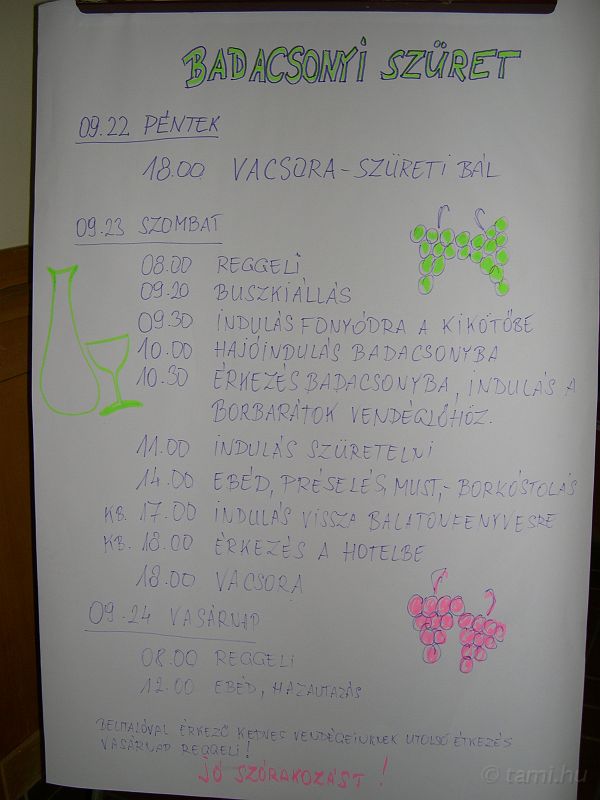 BADACSONYI SZÜRET
09.22 PÉNTEK
18.00 VACSORA-SZÜRETI BÁL
09.23 SZOMBAT
08.00 REGGELI
09.20 BUSZKIÁLLÁS
09.30 INDULÁS FONYÓDRA A KIKÖTŐBE
10.00 HAJÓINDULÁS BADACSONYBA
10.30 ÉRKEZÉS BADACSONYBA, INDULÁS A
BORBARÁTOK VENDÉGLŐHÖZ.
11.00 INDULÁS SZÜRETELNI
14.00 EBÉD, PRÉSELÉS, MUST,- BORKÓSTOLÁS
KB. 17.00 INDULÁS VISSZA BALATONFENYVESRE
KB. 18.00 ÉRKEZÉS A HOTELBE
18.00 VACSORA
09.24 VASÁRNAP
08.00 REGGELI
12.00 EBÉD, HAZAUTAZÁS
BEUTALÓVAL ÉRKEZŐ KEDVES VENDÉGEINKNEK UTOLSÓ ÉTKEZÉS
VASÁRNAP REGGELI!
JÓ SZÓRAKOZÁST!
© tami.hu